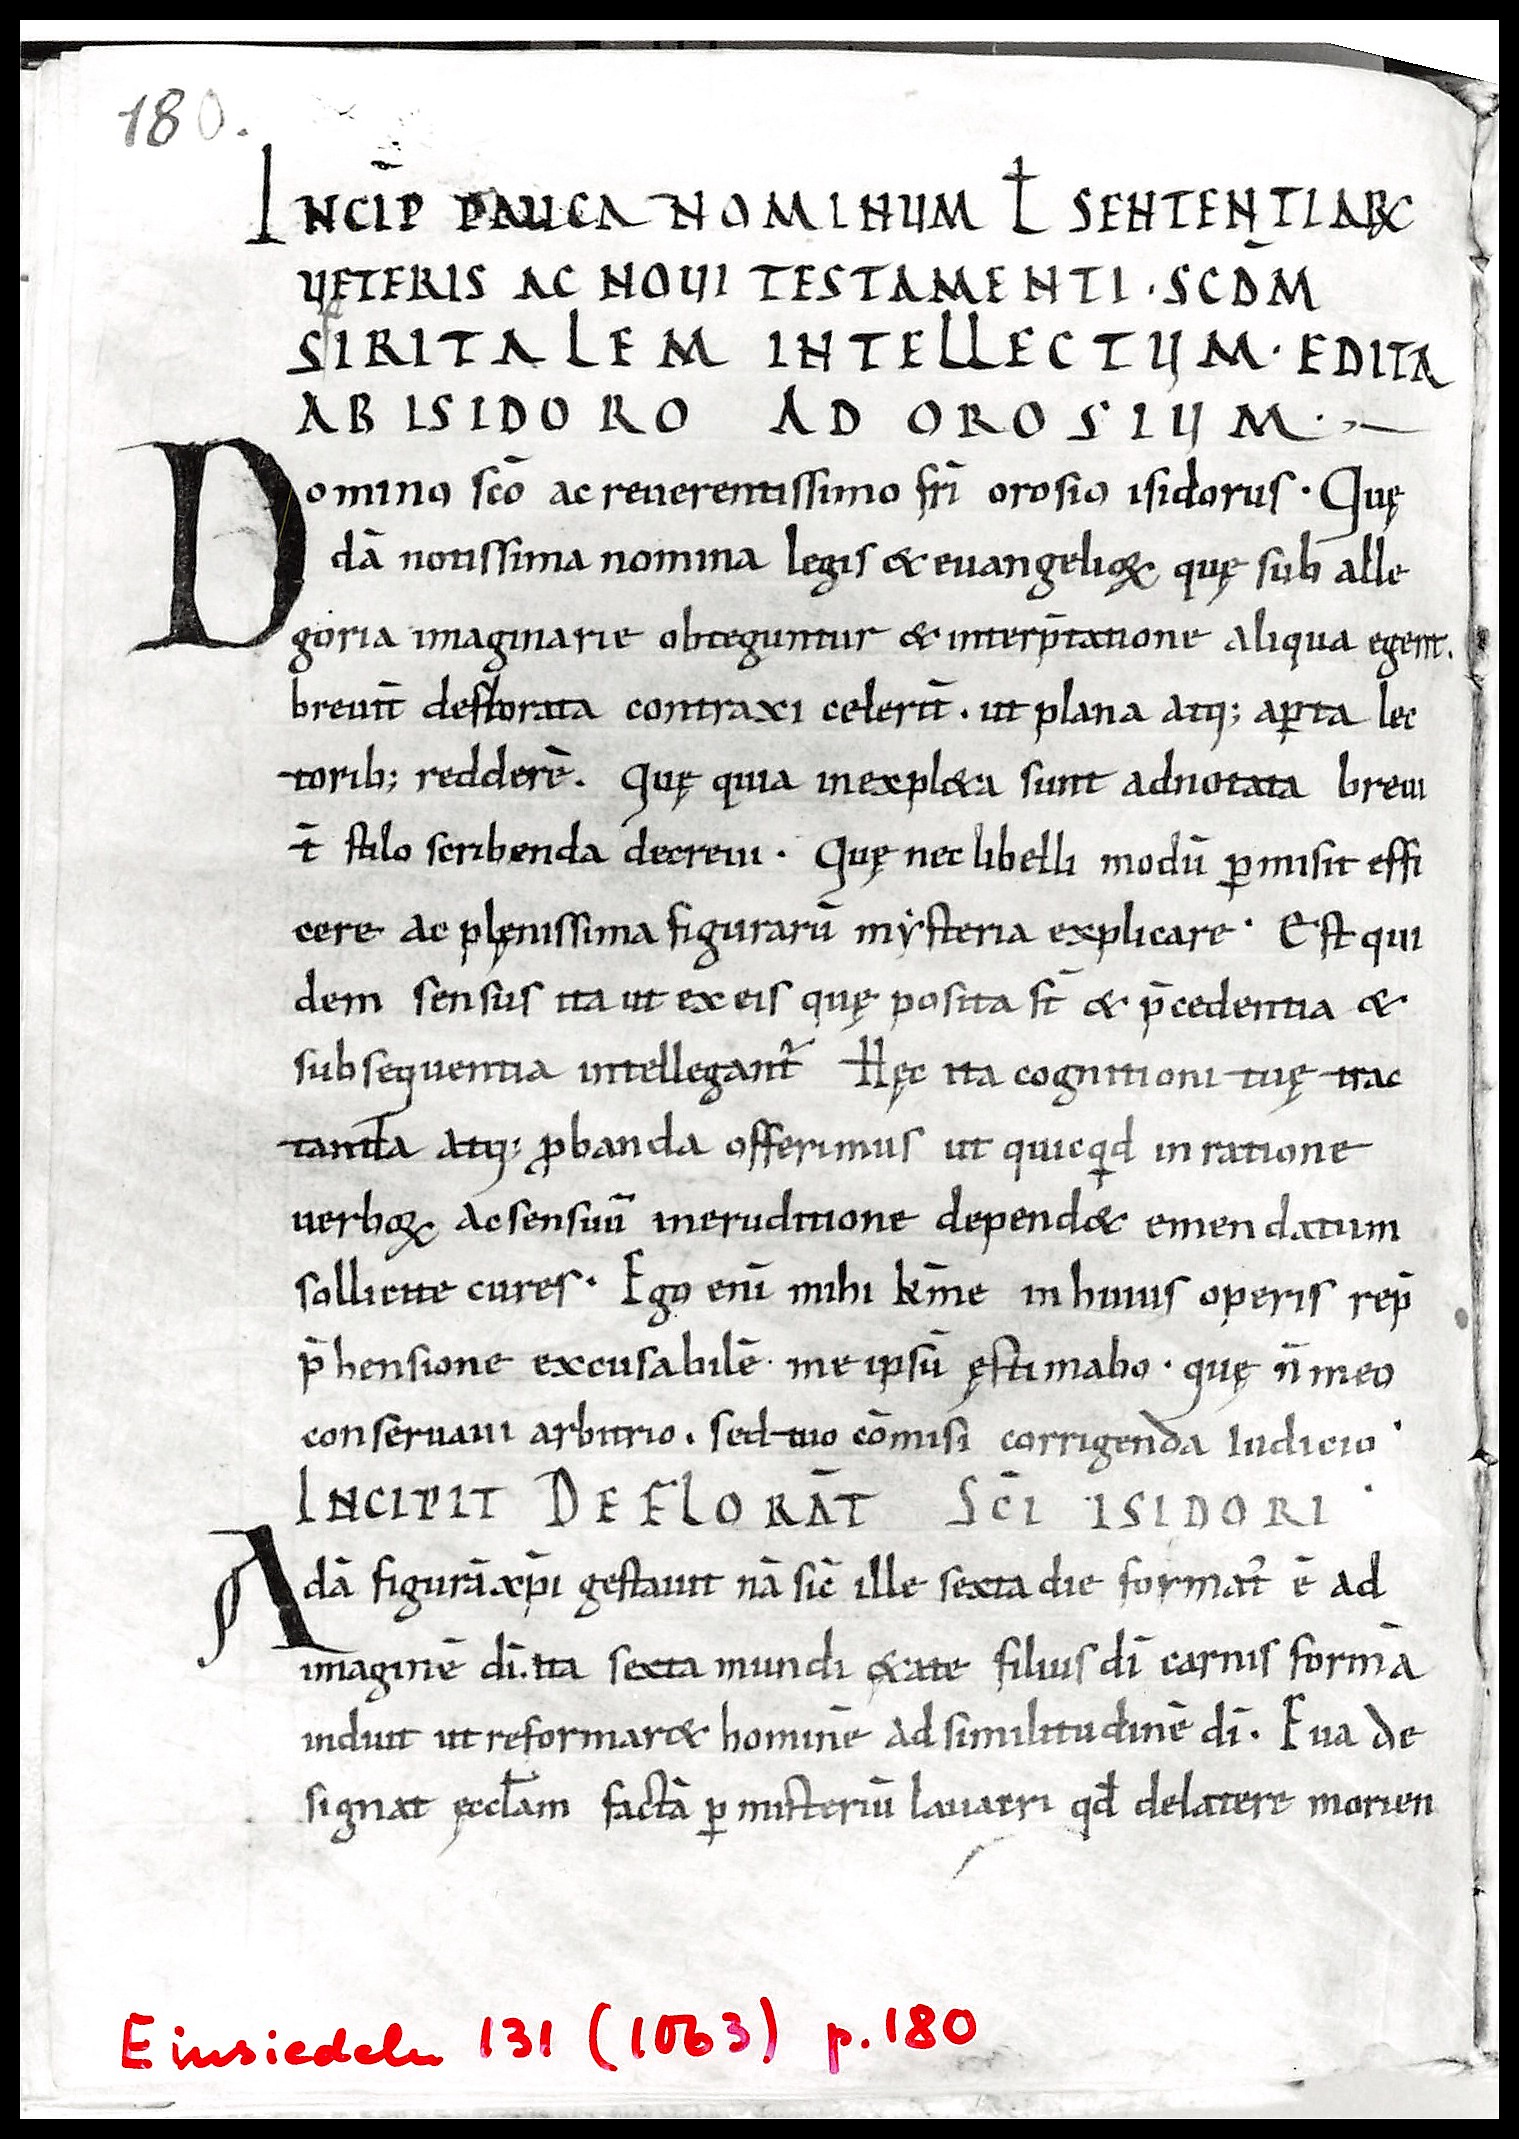 180.
INCIP̄ PAUCA NOMINUM Ɫ SENTENTIARꝜ
UETERIS AC NOUI TESTAMENTI · SCDM̄
SPIRITALEM INTELLECTUM · EDITA
AB ISIDORO AD OROSIUM ·
Domino sc̄o ac reuerentissimo fr̄i orosio isidorus · Quę
dā notissima nomina legis & euangelioꝝ quę sub alle
goria imaginarie obteguntur & interp̄tatione aliqua egent.
breuit̄ deflorata contraxi celerit̄ . ut plana atq; aꝑta lec
torib; redderē. Quę quia inexpl&a sunt adnotata breui
t̄ stilo scribenda decreui · Quę nec libelli modū ꝑmisit effi
cere ac plęnissima figurarū mẏsteria explicare · Est qui
dem sensus ita ut ex eis quę posita st̄ & p̄cedentia &
subsequentia intellegant᷑ Hęc ita cognitioni tuę trac
tanda atq; ꝓbanda offerimus ut quicqd in ratione
uerboꝝ ac sensuū ineruditione depend& emendatum
sollicite cures · Ego eni̅ mihi km̄e in huius operis rep̄
p̄hensione excusabilē · me ipsū ęstimabo · quę n̄ meo
conseruaui arbitrio . sed tuo cōmisi corrigenda Iudicio ·
INCIPIT DEFLORAT̄ SC̄I ISIDORI ·
Adā figurā xp̄i gestauit nā sic̄ ille sexta die format᷑ ē ad
imaginē dī. ita sexta mundi &ate filius dī carnis formā
induit ut reformar& hominē ad similitudinē dī . Eua de
signat ęccɫam factā ꝑ misteriū lauacri qđ de latere morien
Einsiedeln 131 (1063) p. 180